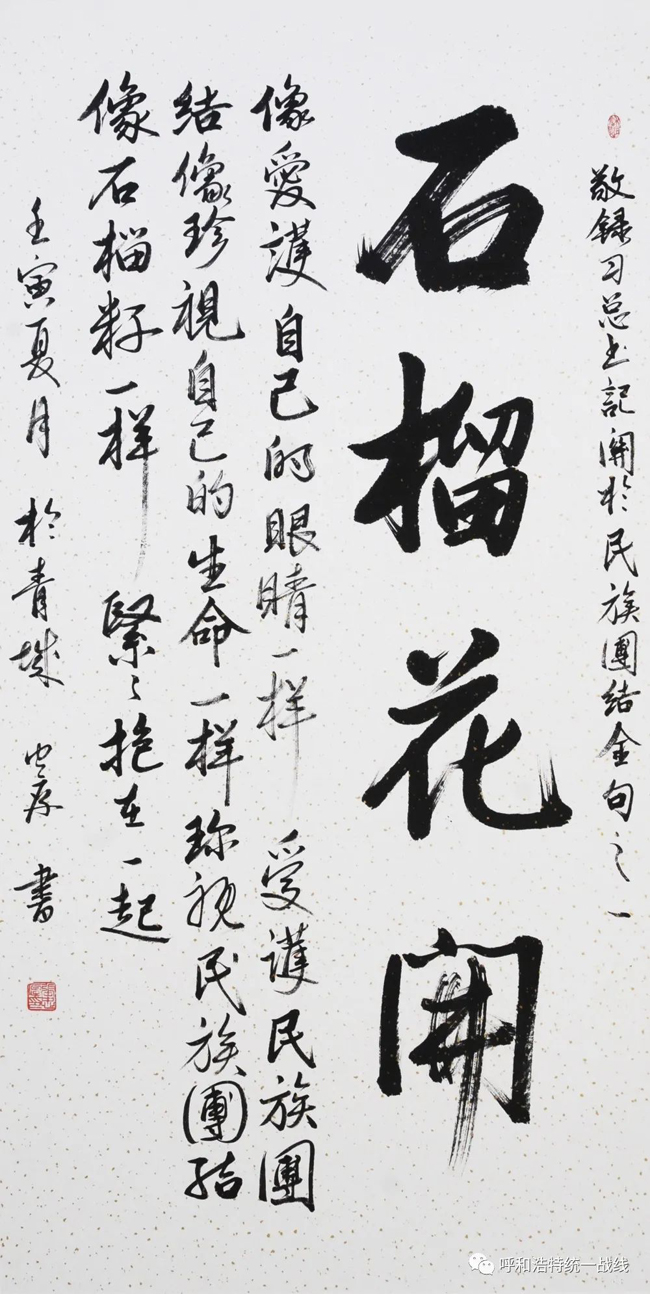 敬録习总书記關於民族團结金句之一
石榴花開
像愛護自己的眼睛一样 爱護民族團
结像珍視自己的生命一样珍视民族團结
像石榴籽一样 緊々抱在一起
壬寅夏月於青城 書
呼和浩特统一战线